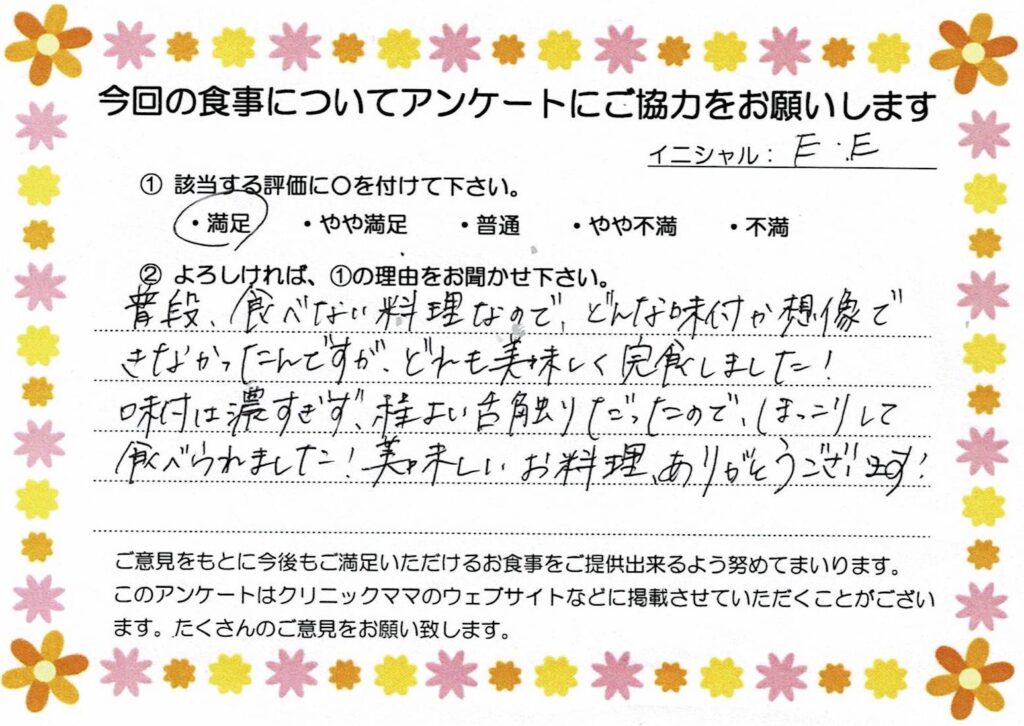 今回の食事についてアンケートにご協力をお願いします
イニシャル： E.E
① 該当する評価に○を付けて下さい。
・満足 ・やや満足 ・普通 ・やや不満 ・不満
② よろしければ、①の理由をお聞かせ下さい。
普段、食べない料理なので、どんな味付か想像で
きなかったんですが、どれも美味しく完食しました！
味付は濃すぎず、程よい舌触りだったので、ほっこりして
食べられました！美味しいお料理、ありがとうございます！
ご意見をもとに今後もご満足いただけるお食事をご提供出来るよう努めてまいります。
このアンケートはクリニックママのウェブサイトなどに掲載させていただくことがござい
ます。たくさんのご意見をお願い致します。